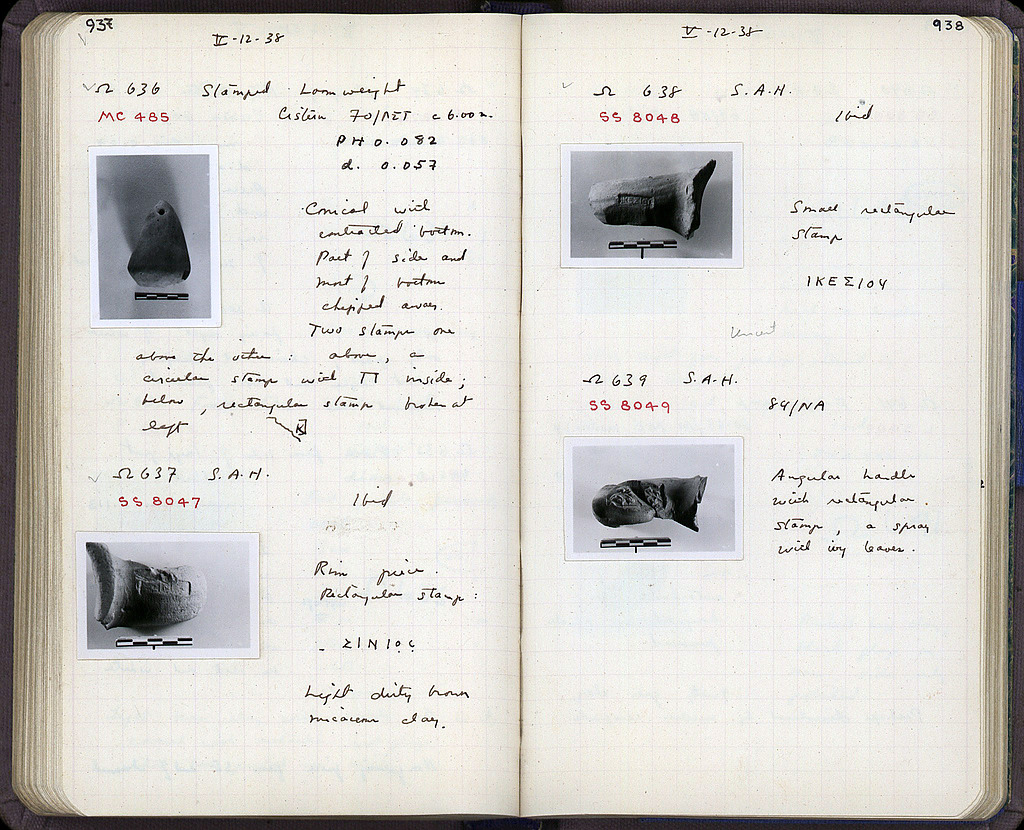 937
V-12-38
Ω 636 Stamped Loomweight
MC 485
Cistern 70/ c 6.00 m.
PH 0.082
d. 0.057
Conical with
contracted bottom.
Part of side and
most of bottom
chipped away.
Two stamps one
above the other: above, a
circular stamp with Π inside;
below, rectangular stamp broken at
left K
Ω 637 S.A.H.
SS 8047
Ibid
Rim piece.
Rectangular stamp:
ΣΙΝΙΟς
Light dirty brown
micaceous clay.
938
V-12-38
Ω 638 S.A.H.
SS 8048
Ibid
Small rectangular
stamp
ΙΚΕΣΙΟΥ
Ω 639 S.A.H.
SS 8049
84/ΝΑ
Angular handle
with rectangular
stamp, a spray
with ivy leaves.